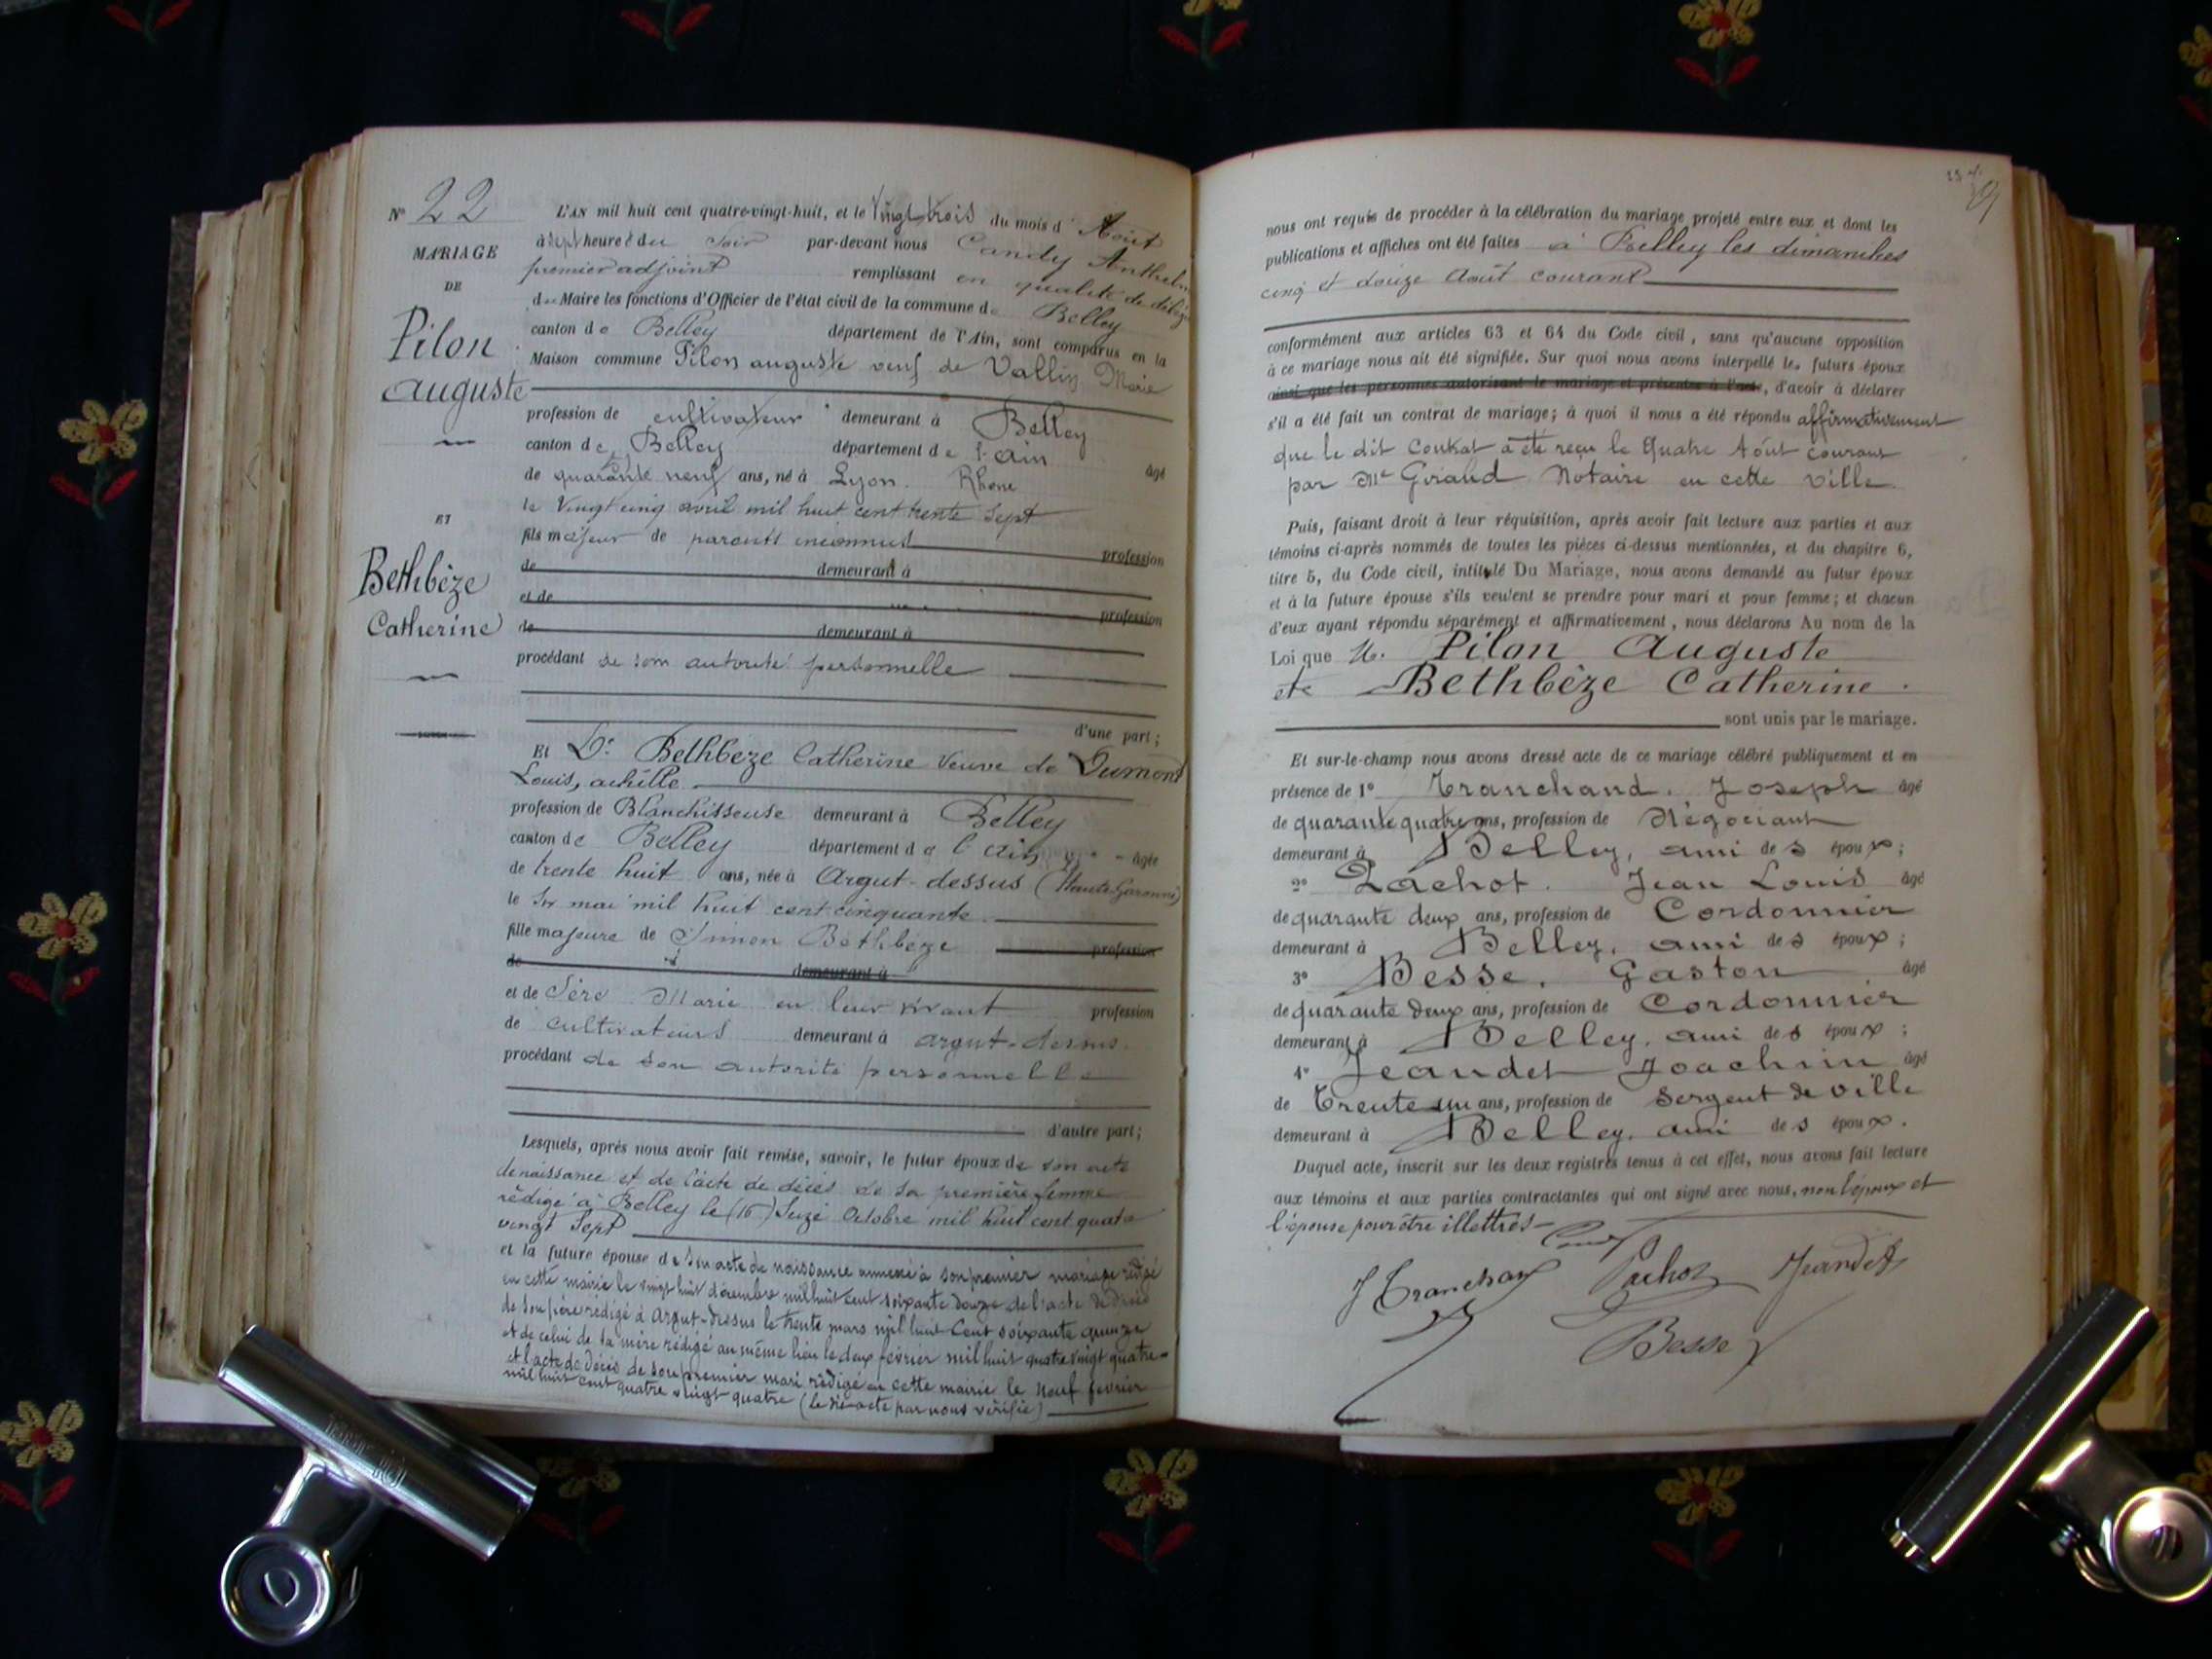 N° 22
MARIAGE
DE
Pilon
auguste
ET
Bethbèze
Catherine
L'AN mil huit cent quatre-vingt-huit, et le Vingt trois du mois d' Aout
à sept heures du Soir par-devant nous Candy Anthelm
premier adjoint remplissant en qualité de délég
du Maire les fonctions d'Officier de l'état civil de la commune de Belley
canton de Belley département de l'Ain, sont comparus en la
Maison commune Pilon auguste veuf de Vallin Marie
profession de cultivateur demeurant à Belley
canton de Belley département de l'ain âgé
de quarante neuf ans, né à Lyon. Rhone
le Vingt cinq avril mil huit cent trente sept
fils majeur de parents inconnus profession
de demeurant à
et de profession
de demeurant à
procédant de son autorité personnelle
d'une part;
Et De Bethbeze Catherine Veuve de Dumont
Louis, achille
profession de Blanchisseuse demeurant à Belley
canton de Belley département de l'ain âgée
de trente huit ans, née à Argut-dessus (Haute Garonne)
le Six mai mil huit cent cinquante
fille majeure de Simon Bethbèze profession
de demeurant à
et de Sère Marie en leur vivant profession
de cultivateurs demeurant à argut-dessus
procédant de son autorité personnelle
d'autre part;
Lesquels, après nous avoir fait remise, savoir, le futur époux de son acte
de naissance et de l'acte de décès de sa première femme
rédigé à Belley le (16) Seize Octobre mil huit cent quatre
vingt Sept
et la future épouse de son acte de naissance annexé à son premier mariage rédigé
en cette mairie le vingt huit décembre mil huit cent soixante douze de l'acte de décès
de son père rédigé à Argut-Dessus le trente mars mil huit Cent soixante quinze
et de celui de sa mère rédigé au même lieu le deux février mil huit quatre vingt quatre
et l'acte de décès de son premier mari rédigé en cette mairie le neuf février
mil huit cent quatre vingt quatre (le dit acte par nous vérifié)
nous ont requis de procéder à la célébration du mariage projeté entre eux et dont les
publications et affiches ont été faites à Belley les dimanches
cinq et douze Août courant
conformément aux articles 63 et 64 du Code civil, sans qu'aucune opposition
à ce mariage nous ait été signifiée. Sur quoi nous avons interpellé les futurs époux
ainsi que les personnes autorisant le mariage et présentes à l'acte, d'avoir à déclarer
s'il a été fait un contrat de mariage; à quoi il nous a été répondu affirmativement
que le dit contrat a été reçu le Quatre Août courant
par Me Giraud Notaire en cette ville
Puis, faisant droit à leur réquisition, après avoir fait lecture aux parties et aux
témoins ci-après nommés de toutes les pièces ci-dessus mentionnées, et du chapitre 6,
titre 5, du Code civil, intitulé Du Mariage, nous avons demandé au futur époux
et à la future épouse s'ils veulent se prendre pour mari et pour femme; et chacun
d'eux ayant répondu séparément et affirmativement, nous déclarons Au nom de la
Loi que M. Pilon Auguste
et Bethbèze Catherine.
sont unis par le mariage.
Et sur-le-champ nous avons dressé acte de ce mariage célébré publiquement et en
présence de 1° Tranchand. Joseph âgé
de quarante quatre ans, profession de Négociant
demeurant à Belley, ami des époux;
2° Pachot. Jean Louis âgé
de quarante deux ans, profession de Cordonnier
demeurant à Belley, ami des époux;
3° Besse. Gaston âgé
de quarante deux ans, profession de Cordonnier
demeurant à Belley, ami des époux;
4° Jeandet Joachim âgé
de Trente un ans, profession de Sergent de ville
demeurant à Belley. ami des époux.
Duquel acte, inscrit sur les deux registres tenus à cet effet, nous avons fait lecture
aux témoins et aux parties contractantes qui ont signé avec nous, non l'époux et
l'épouse pour être illettrés
J Tranchand Pachot Jeandet
Besse